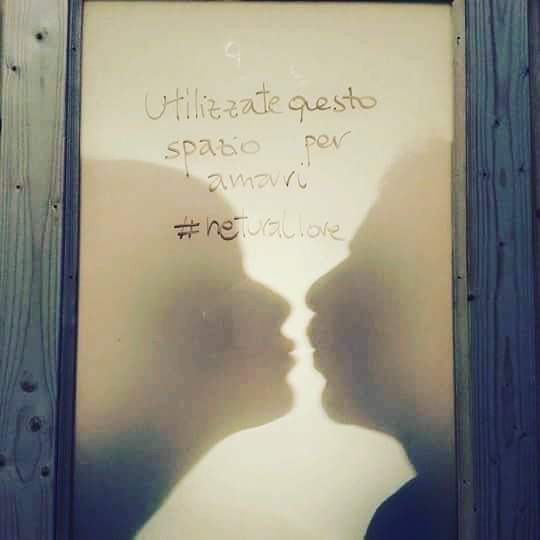 Utilizzate questo
spazio per
amarvi
#neturallove